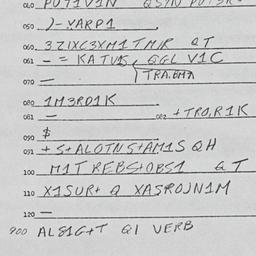 010 PO71V1N QSYN PO73R-
050 )-YARP1
060 3Z1XC3XM1TMR QT
061 - = KATUS, QGL V1C
070 — TRA.BM7
080 1M3RD1K
081 — 082 +TRO,R1K
090 $
091 +S+ALOTNS+AM1S QH
100 M1T REBS+OBS1 QT
110 X1SUR+ Q XASROJN1M
120 —
900 AL81G+T Q1 VERB